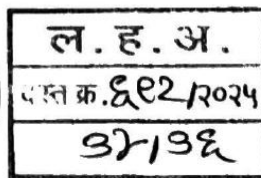 ल. ह. अ.
दस्त क्र. ६९२/२०२५
३२/३६